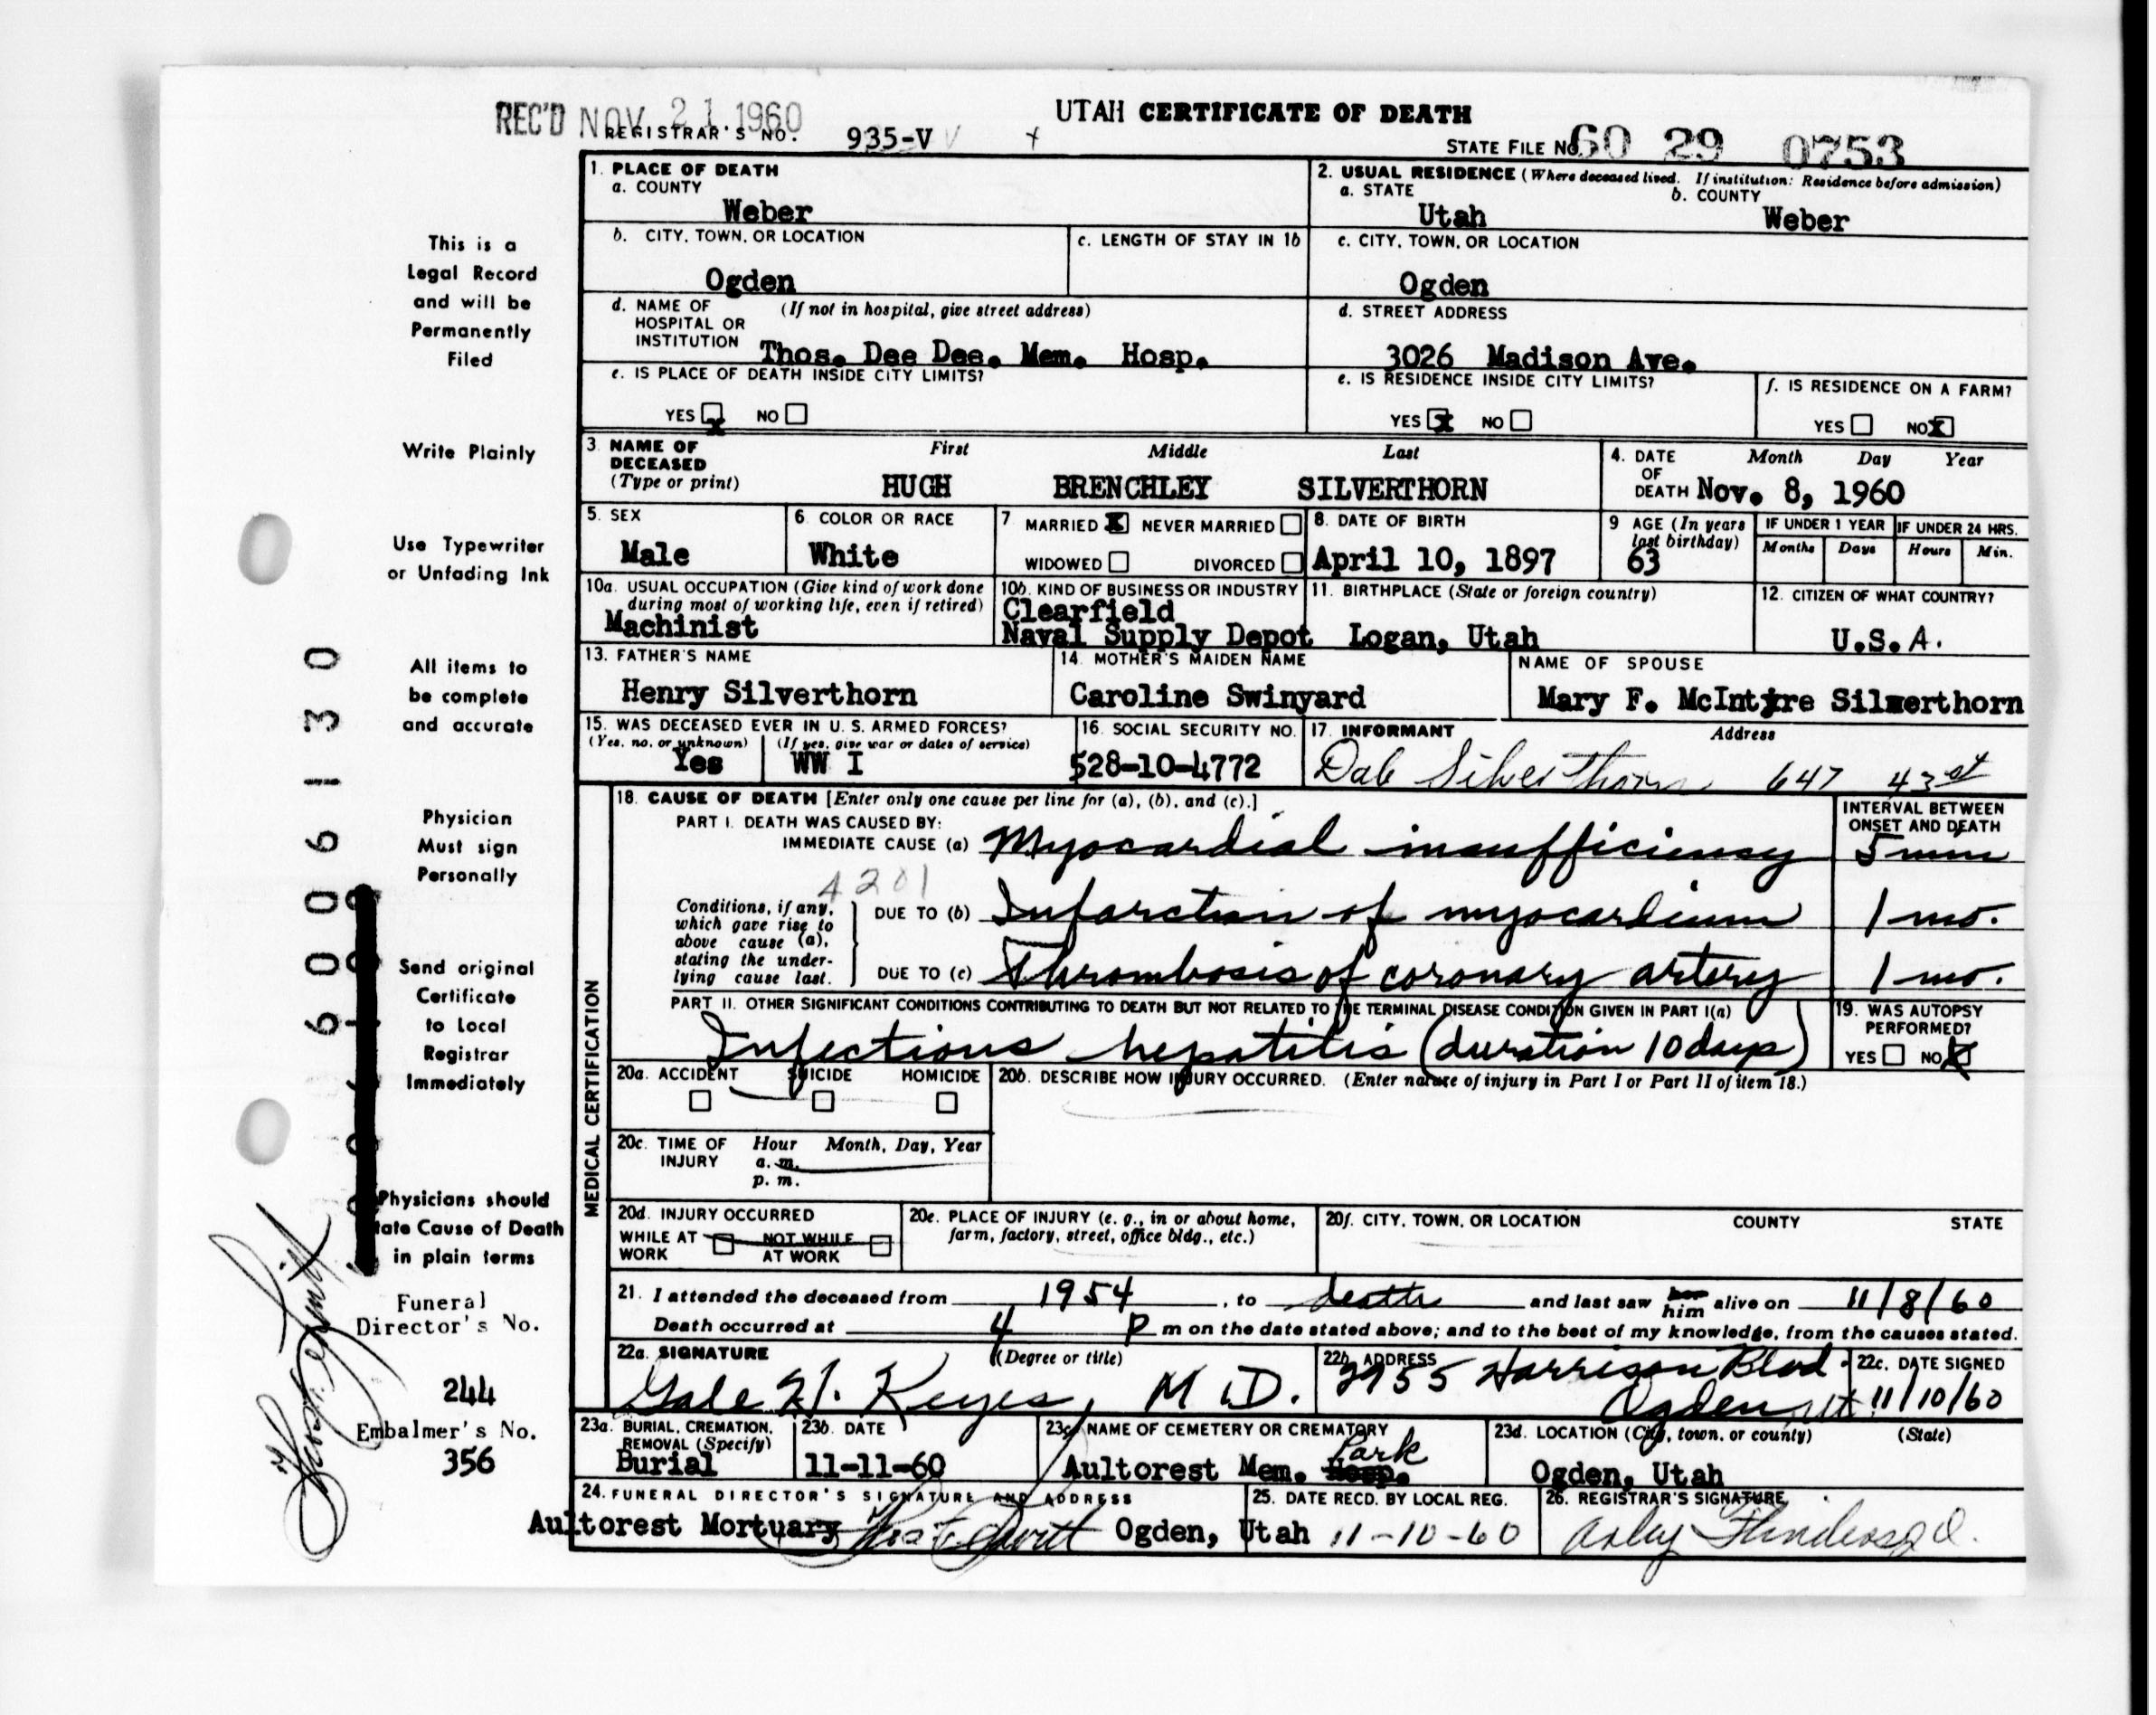 REC'D NOV 21 1960
UTAH CERTIFICATE OF DEATH
REGISTRAR'S NO. 935-V
STATE FILE NO. 60 29 0753
This is a
Legal Record
and will be
Permanently
Filed
Write Plainly
Use Typewriter
or Unfading Ink
All items to
be complete
and accurate
Physician
Must sign
Personally
Send original
Certificate
to Local
Registrar
Immediately
Physicians should
tate Cause of Death
in plain terms
Funeral
Director's No.
244
Embalmer's No.
356
1. PLACE OF DEATH
a. COUNTY
Weber
2. USUAL RESIDENCE (Where deceased lived. If institution: Residence before admission)
a. STATE b. COUNTY
Utah Weber
b. CITY, TOWN, OR LOCATION
Ogden
c. LENGTH OF STAY IN 1b
c. CITY, TOWN, OR LOCATION
Ogden
d. NAME OF (If not in hospital, give street address)
HOSPITAL OR
INSTITUTION Thos. Dee Dee. Mem. Hosp.
d. STREET ADDRESS
3026 Madison Ave.
e. IS PLACE OF DEATH INSIDE CITY LIMITS?
YES x NO
e. IS RESIDENCE INSIDE CITY LIMITS?
YES x NO
f. IS RESIDENCE ON A FARM?
YES NO x
3. NAME OF First Middle Last
DECEASED
(Type or print) HUGH BRENCHLEY SILVERTHORN
4. DATE Month Day Year
OF
DEATH Nov. 8, 1960
5. SEX
Male
6. COLOR OR RACE
White
7 MARRIED X NEVER MARRIED
WIDOWED DIVORCED
8. DATE OF BIRTH
April 10, 1897
9 AGE (In years
last birthday)
63
IF UNDER 1 YEAR IF UNDER 24 HRS.
Months Days Hours Min.
10a. USUAL OCCUPATION (Give kind of work done
during most of working life, even if retired)
Machinist
10b. KIND OF BUSINESS OR INDUSTRY
Clearfield
Naval Supply Depot
11. BIRTHPLACE (State or foreign country)
Logan, Utah
12. CITIZEN OF WHAT COUNTRY?
U.S.A.
13. FATHER'S NAME
Henry Silverthorn
14. MOTHER'S MAIDEN NAME
Caroline Swinyard
NAME OF SPOUSE
Mary F. McIntyre Silverthorn
15. WAS DECEASED EVER IN U.S. ARMED FORCES?
(Yes, no, or unknown) (If yes, give war or dates of service)
Yes WW I
16. SOCIAL SECURITY NO.
528-10-4772
17. INFORMANT Address
Silverthorn 647 43 st
MEDICAL CERTIFICATION
18. CAUSE OF DEATH [Enter only one cause per line for (a), (b), and (c).]
INTERVAL BETWEEN
ONSET AND DEATH
PART I. DEATH WAS CAUSED BY:
IMMEDIATE CAUSE (a) Myocardial insufficiency 5 min
4201
Conditions, if any,
which gave rise to
above cause (a),
stating the under-
lying cause last.
DUE TO (b) Infarction of myocardium 1 mo.
DUE TO (c) Thrombosis of coronary artery 1 mo.
PART II. OTHER SIGNIFICANT CONDITIONS CONTRIBUTING TO DEATH BUT NOT RELATED TO THE TERMINAL DISEASE CONDITION GIVEN IN PART I(a)
Infectious hepatitis (duration 10 days)
19. WAS AUTOPSY
PERFORMED?
YES NO X
20a. ACCIDENT SUICIDE HOMICIDE
20b. DESCRIBE HOW INJURY OCCURRED. (Enter nature of injury in Part I or Part II of item 18.)
20c. TIME OF Hour Month, Day, Year
INJURY a. m.
p. m.
20d. INJURY OCCURRED
WHILE AT NOT WHILE
WORK AT WORK
20e. PLACE OF INJURY (e. g., in or about home,
farm, factory, street, office bldg., etc.)
20f. CITY, TOWN, OR LOCATION COUNTY STATE
21. I attended the deceased from 1954, to death and last saw her him alive on 11/8/60
Death occurred at 4 P m on the date stated above; and to the best of my knowledge, from the causes stated.
22a. SIGNATURE (Degree or title)
Gale H. Keyes, M.D.
22b. ADDRESS
3955 Harrison Blvd.
Ogden Ut
22c. DATE SIGNED
11/10/60
23a. BURIAL, CREMATION,
REMOVAL (Specify)
Burial
23b. DATE
11-11-60
23c. NAME OF CEMETERY OR CREMATORY
Aultorest Mem. Hosp. Park
23d. LOCATION (City, town, or county) (State)
Ogden, Utah
24. FUNERAL DIRECTOR'S SIGNATURE AND ADDRESS
Aultorest Mortuary Ogden, Utah
25. DATE RECD. BY LOCAL REG.
11-10-60
26. REGISTRAR'S SIGNATURE